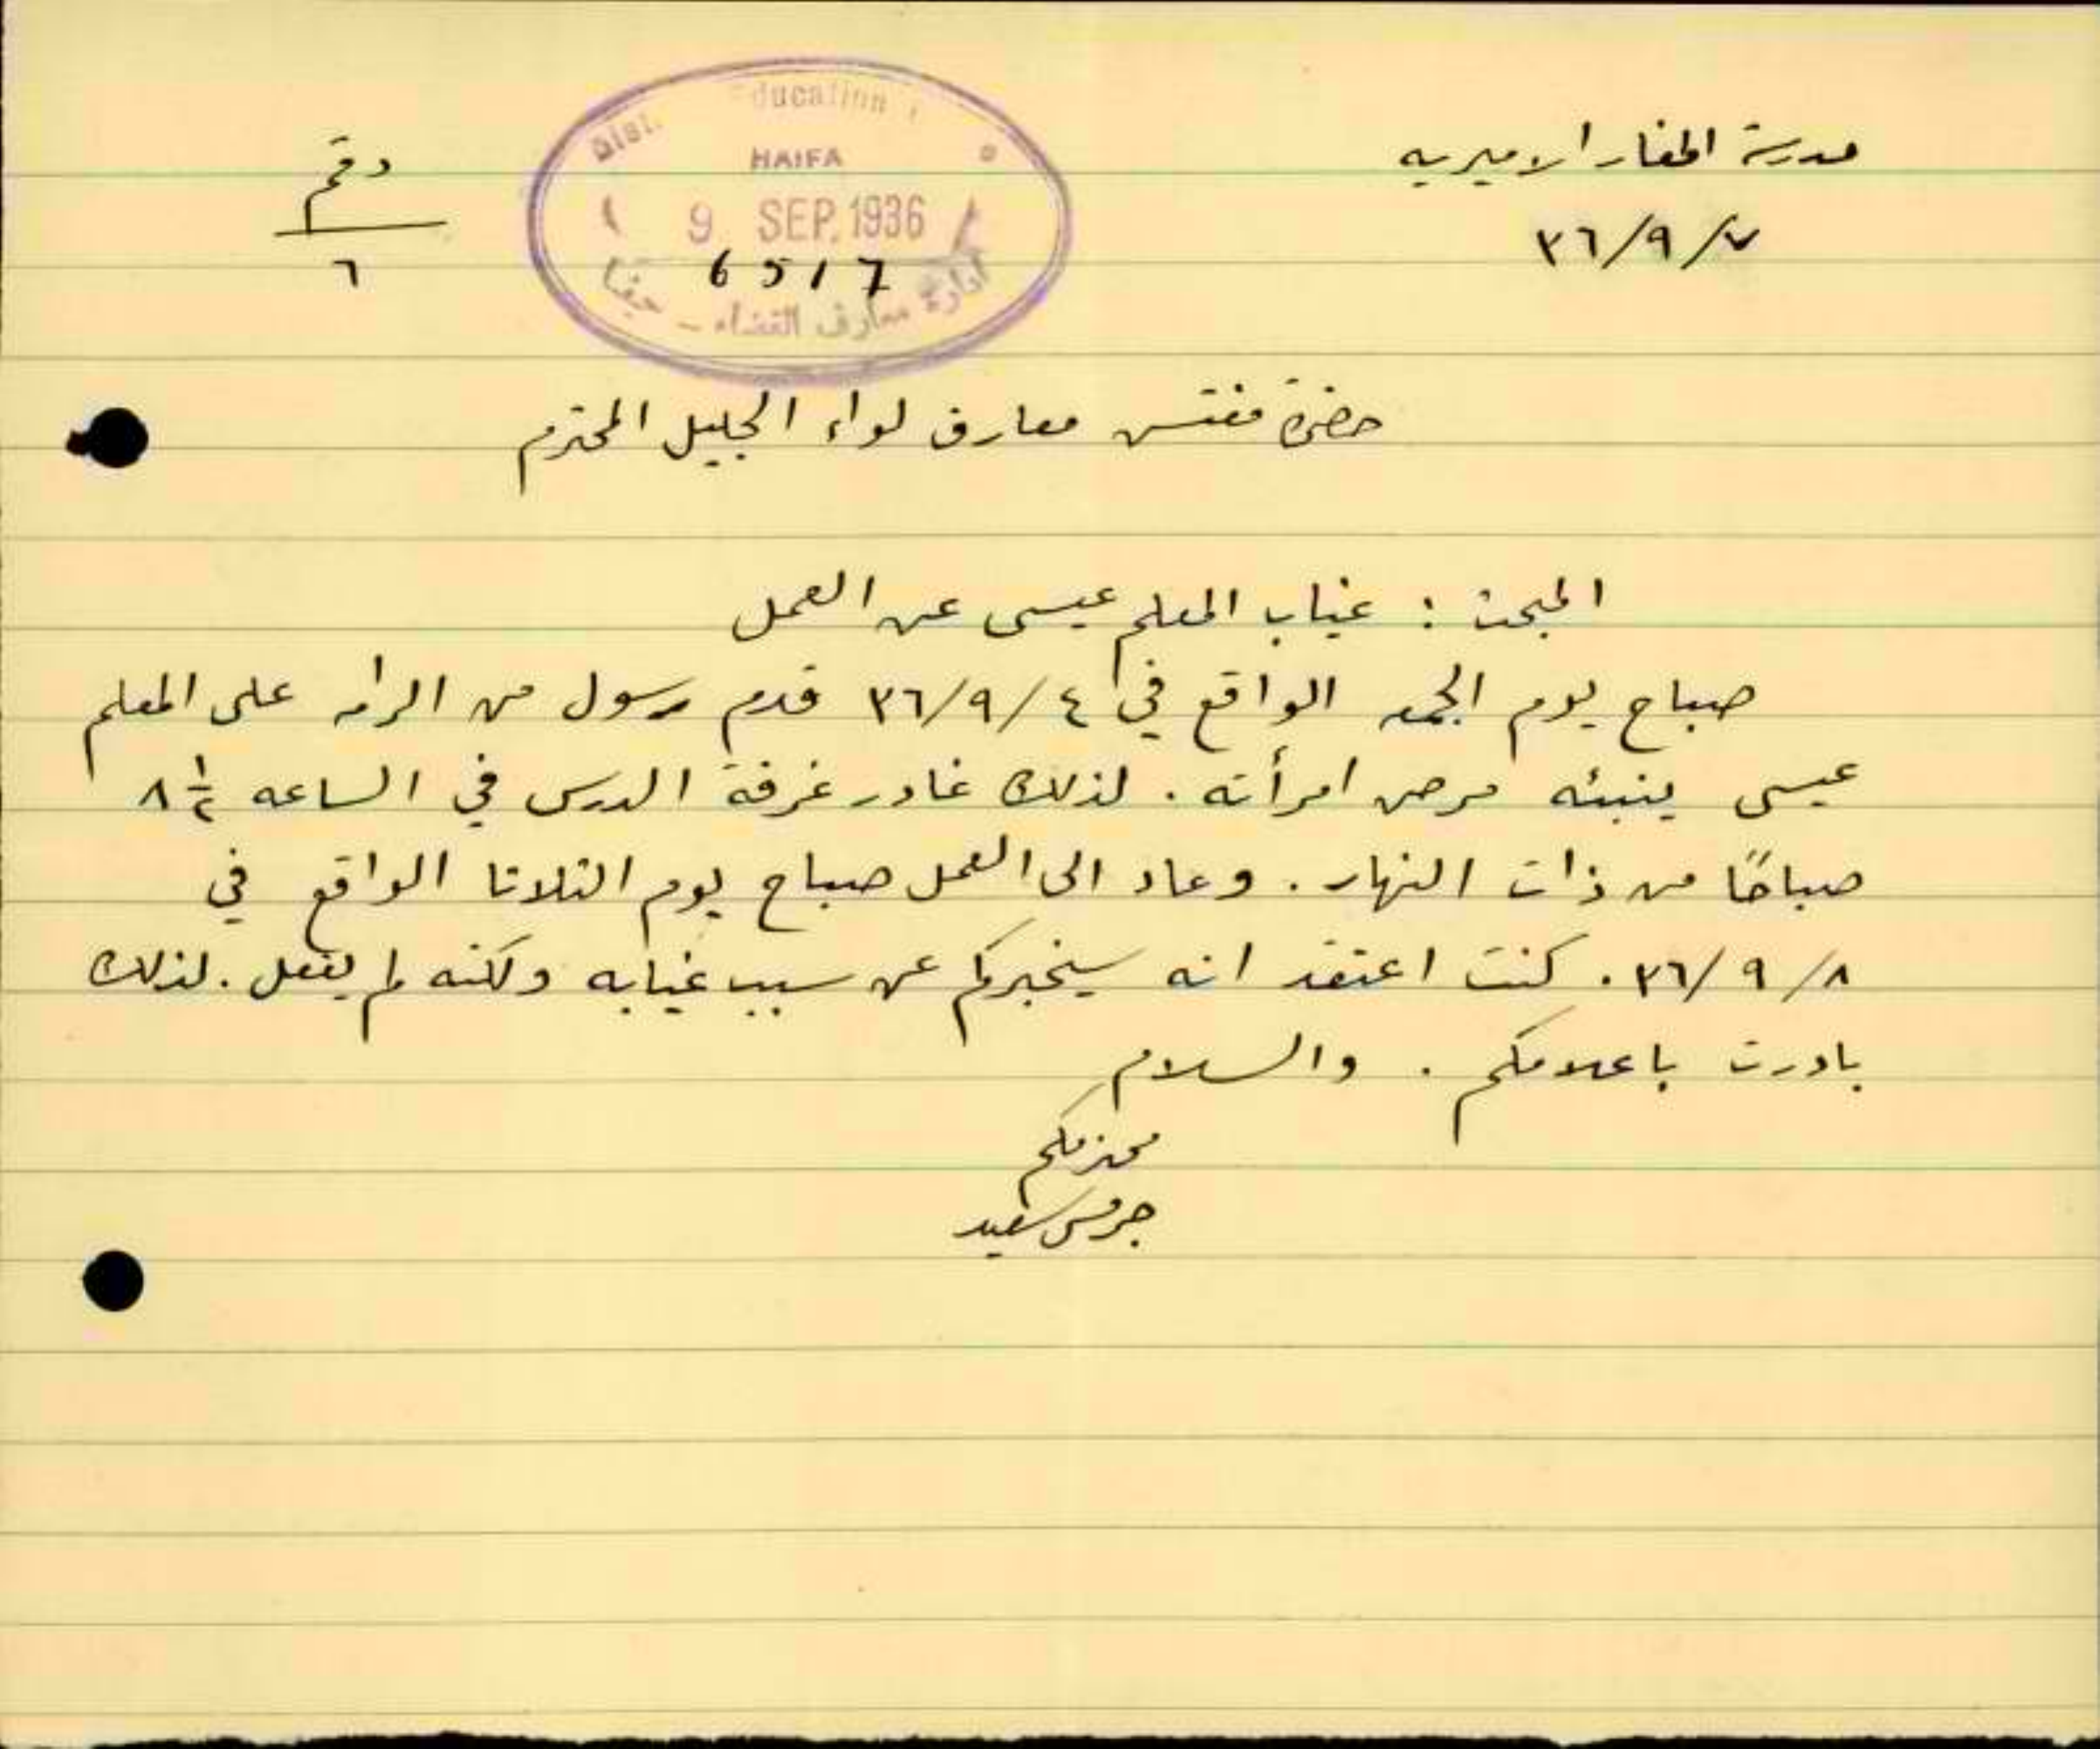 مدرسة المغار الاميريه
٣٦/٩/٧
رقم
٦
Dist. Education
HAIFA
9 SEP. 1936
6517
ادارة معارف القضاء - حيفا
حضرة مفتش معارف لواء الجليل المحترم
المبحث : غياب المعلم عيسى عن العمل
صباح يوم الجمعه الواقع في ٣٦/٩/٤ قدم رسول من الرامه على المعلم
عيسى ينبئه مرض امرأته . لذلك غادر غرفة الدرس في الساعه ٨ ١/٢
صباحًا من ذات النهار . وعاد الى العمل صباح يوم الثلاثا الواقع في
٣٦/٩/٨ . كنت اعتقد انه سيخبركم عن سبب غيابه ولكنه لم يفعل . لذلك
بادرت باعلامكم . والسلام
محترمكم
جريس سعيد